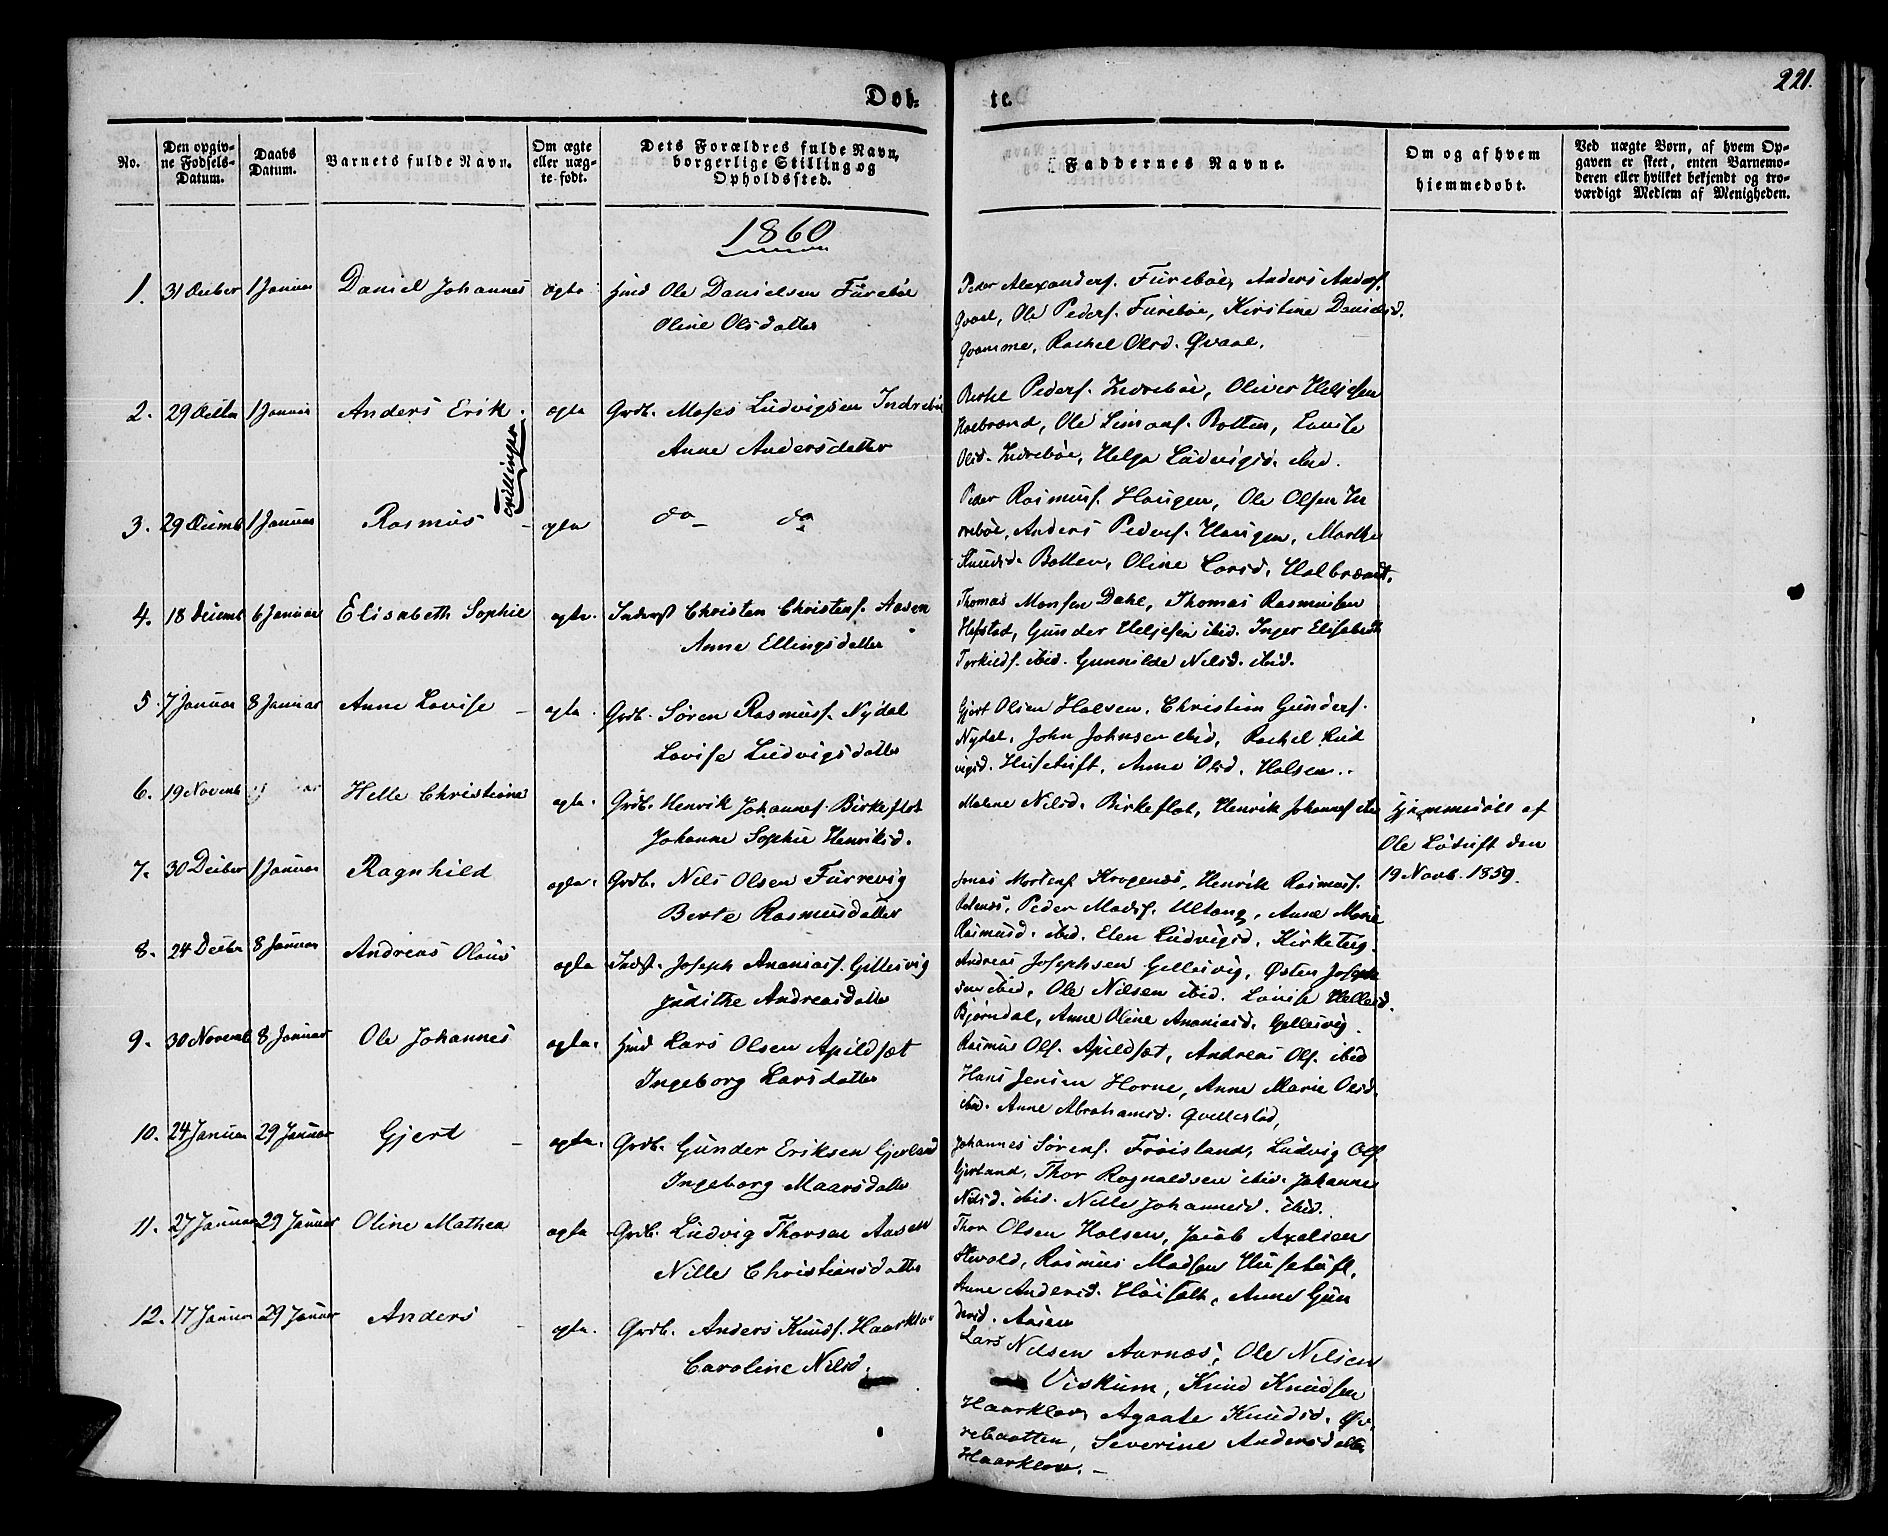 Døb-
te.
221.
No.
Den opgiv-
ne Fødsels-
Datum.
Daabs
Datum.
Barnets fulde Navn.
Om ægte
eller uæg-
te født.
Dets Forældres fulde Navn,
borgerlige Stilling og
Opholdssted.
Faddernes Navne.
Om og af hvem
hjemmedøbt.
Ved uægte Børn, af hvem Op-
gaven er skeet, enten Barnemo-
deren eller hvilket bekjendt og tro-
værdigt Medlem af Menigheden.
1860
1. 31 Deciber 1 Januar Daniel Johannes ægte Hmd Ole Danielsen Furebøe
Oline Olsdatter
Peder Alexanders. Furebøe, Anders Anders.
Qvaal, Ole Peders. Furebøe, Kirstine Danielsd.
Qvamme, Rachel Olsd. Qvaal.
2. 29 1 Januar Anders Erik. ægte Grdb. Moses Ludvigsen Indrebøe
Anne Andersdatter
Tvillinger
Bertel Peders. Indrebøe, Oliver Heljesen
Holbrand, Ole Simons. Botten, Lovise
Olsd. Indrebøe, Helga Ludvigsd. ibid.
3. 29 Decemb 1 Januar Rasmus - ægte do do
Peder Rasmus. Haugen, Ole Olsen In
drebøe, Anders Peders. Haugen, Marthe
Knudsd. Botten, Oline Larsd. Holbrandt.
4. 18 Decemb 6 Januar Elisabeth Sophie ægte. Inderst Christen Christens. Aasen
Anne Ellingsdatter
Thomas Monsen Dahl, Thomas Rasmusen
Hafstad, Gunder Heljesen ibid. Inger Elisabeth
Torkilds. ibid. Gunnilde Nilsd. ibid.
5. 7 Januar 8 Januar Anne Lovise - ægte. Grdb. Søren Rasmus. Nydal
Lovise Ludvigsdatter
Gjert Olsen Halsen, Christian Gunders.
Nydal, John Johnsen ibid, Rachel Lud
vigsd. Husetuft, Anne Olsd. Halsen.
6. 19 Novemb Helle Christiane ægte. Grdb. Henrik Johannes. Birkeflot
Johanne Sophie Henriksd.
Malene Nilsd. Birkeflot, Henrik Johannes. ibid
Hjemmedøbt af
Ole Løtuft den
19 Novb. 1859.
7. 30 Deciber 1 Januar Ragnhild ægte. Grdb. Nils Olsen Furrevig
Berte Rasmusdatter
Jonas Mortens. Krogenæs, Henrik Rasmus.
Peder Mads. Ullang, Anne Marie
Rasmusd. ibid. Elen Ludvigsd. Kirketeig.
8. 24 Decbr 8 Januar Andreas Olaus ægte Indst. Joseph Ananias. Gillesvig
Judithe Andreasdatter
Andreas Josephsen Gellesvig, Østen Joseph
sen ibid, Ole Nilsen ibid. Lovise Hellesd.
Bjørndal, Anne Oline Ananiasd. Gellesvig.
9. 30 Novemb 8 Januar Ole Johannes ægte. Hmd Lars Olsen Apildsæt
Ingeborg Larsdatter
Rasmus Ols. Apildsæt, Andreas Ols. ibid
Hans Jensen Horne, Anne Marie Olsd.
ibid. Anne Abrahamsd. Qvellestad,
10. 24 Januar 29 Januar Gjert - ægte. Grdb. Gunder Eriksen Gjerland
Ingeborg Maarsdatter
Johannes Sørens. Frøisland, Ludvig Ols.
Gjerland, Thor Ragnaldsen ibid. Johanne
Nilsd. ibid. Nille Johannesd. ibid.
11. 27 Januar 29 Januar Oline Mathea ægte Grdb. Ludvig Thorsen Aasen
Nille Christiansdatter
Thor Olsen Halsen, Jacob Axelsen
Rasmus Madsen Husetuft,
Anne Andersd. Anne Gun
dersd. Aasen
12. 17 Januar 29 Januar Anders - ægte. Grdb. Anders Knuds. Haarklov
Caroline Nilsd.
Lars Nilsen Aarnæs, Ole Nilsen
Viskum, Knud Knudsen
Haarklov, Agaate Knudsd. Øv
rebaatten, Severine Andersdatter
Haarklov. -